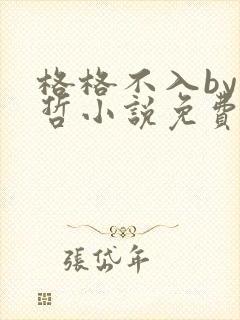 格格不入by
哲小說免費
張岱年